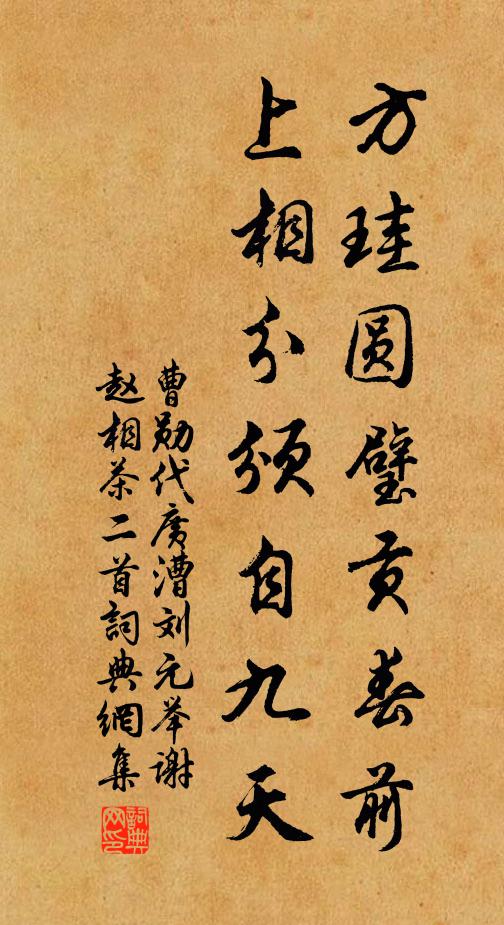 方珪圆璧贡春前
上相分颁自九天
曹勋代广漕刘元举谢
赵相茶二首詞典網集
詞典网印